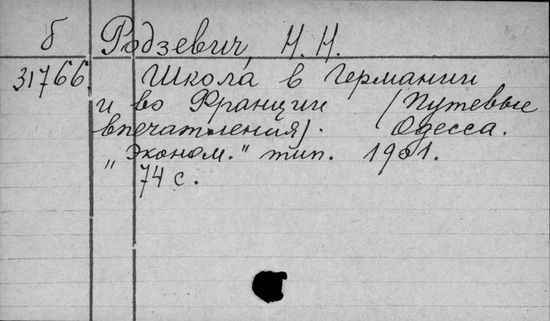 б Родзевич, Н. Н.
31766 Школа в Германии
и во Франции (Путевые
впечатления). Одесса.
„Эконом.“ тип. 1901.
74 с.